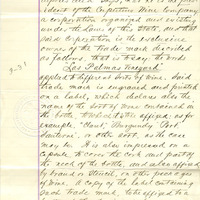 client of the Cupertino Wine Company
a corporation organized and existing
under the Laws of this State, and that
said Corporation is the exclusive
owner of the Trade mark described
as follows, that is to say: the words
"Las Palmas Vineyard"
applied to different sorts of wine. Said
trade mark is engraved and printed
on a label, which also has also the
name of the sort of wine contained in
the bottle to which it is affixed, as for
example: "Claret", "Burgundy", "Port",
"Sauterne", or other sort, as the case
may be. It is also impressed on a
Capsule to cover the cork and part of
the neck of the bottle; and also affixed
by brand or stencil, on other packages
of wine. A copy of the label containing
such trade mark, to be affixed to a